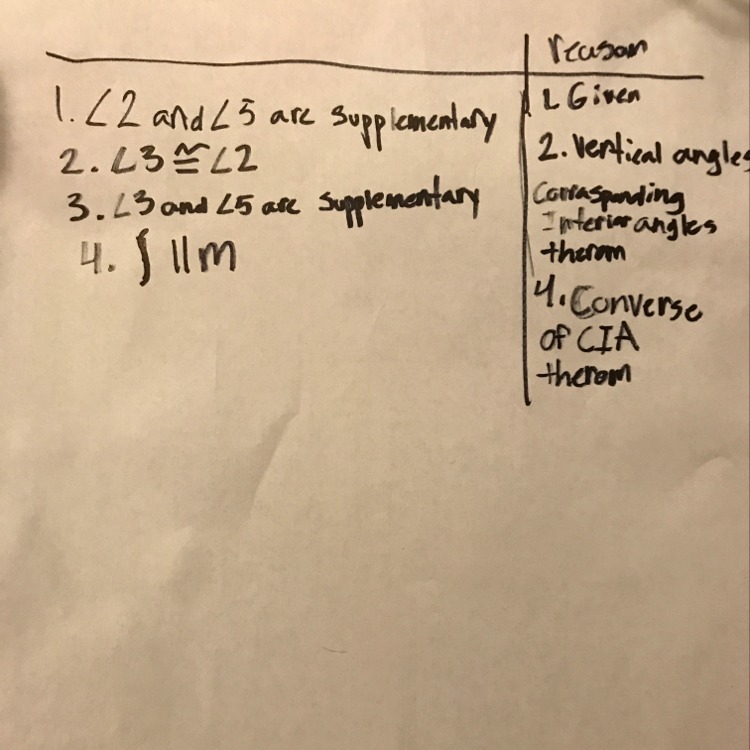 reason
1. ∠2 and ∠5 are supplementary
1. Given
2. ∠3 ≅ ∠2
2. Vertical angles
3. ∠3 and ∠5 are supplementary
Corrasponding
Interior angles
therom
4. ∫ || m
4. Converse
of CIA
therom